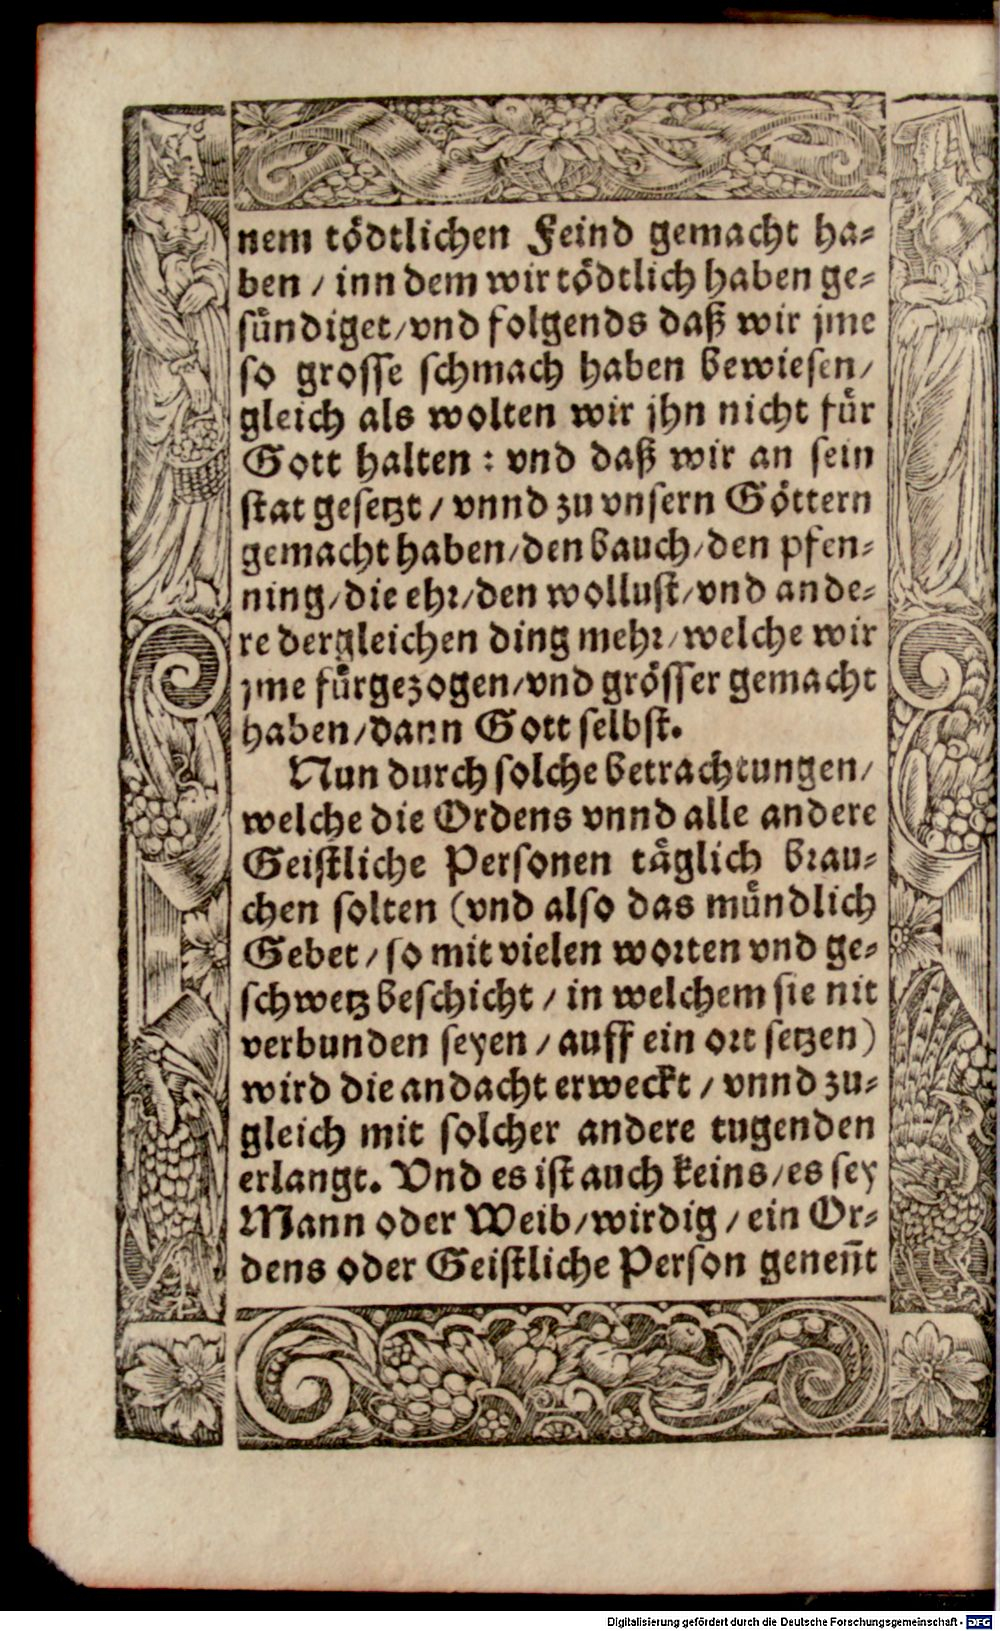 nem tödtlichen Feind gemacht ha-
ben / inn dem wir tödtlich haben ge-
sündiget/vnd folgends daß wir jme
so grosse schmach haben bewiesen/
gleich als wolten wir jhn nicht für
Gott halten : vnd daß wir an sein
stat gesetzt / vnnd zu vnsern Göttern
gemacht haben/den bauch/den pfen-
ning/die ehr/den wollust/vnd ande-
re dergleichen ding mehr/welche wir
jme fürgezogen/vnd grösser gemacht
haben/dann Gott selbst.
Nun durch solche betrachtungen/
welche die Ordens vnnd alle andere
Geistliche Personen täglich brau-
chen solten (vnd also das mündlich
Gebet / so mit vielen worten vnd ge-
schwetz beschicht / in welchem sie nit
verbunden seyen / auff ein ort setzen)
wird die andacht erweckt / vnnd zu-
gleich mit solcher andere tugenden
erlangt. Vnd es ist auch keins/es sey
Mann oder Weib/wirdig / ein Or-
dens oder Geistliche Person geneñt
Digitalisierung gefördert durch die Deutsche Forschungsgemeinschaft - DFG